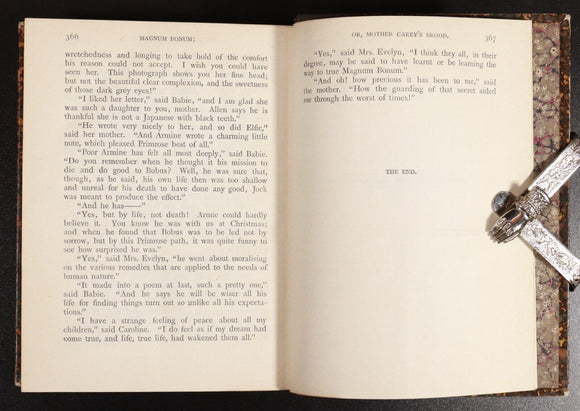 366 MAGNUM BONUM;
wretchedness and longing to take hold of the comfort
his reason could not accept. I wish you could have
seen her. This photograph shows you her fine head;
but not the beautiful clear complexion, and the sweetness
of those dark grey eyes!"
"I liked her letter," said Babie, "and I am glad she
was such a daughter to you, mother. Allen says he is
thankful she is not a Japanese with black teeth."
"He wrote very nicely to her, and so did Elfie,"
said her mother. "And Armine wrote a charming little
note, which pleased Primrose best of all."
"Poor Armine has felt all most deeply," said Babie.
"Do you remember when he thought it his mission to
die and do good to Bobus? Well, he was sure that,
though, as he said, his own life then was too shallow
and unreal for his death to have done any good, Jock
was meant to produce the effect."
"And he has——"
"Yes, but by life, not death! Armie could hardly
believe it. You know he was with us at Christmas;
and when he found that Bobus was to be led not by
sorrow, but by this Primrose path, it was quite funny to
see how surprised he was."
"Yes," said Mrs. Evelyn, "he went about moralising
on the various remedies that are applied to the needs of
human nature."
"It made into a poem at last, such a pretty one,"
said Babie. "And he says he will be wiser all his
life for finding things turn out so unlike all his expecta-
tions."
"I have a strange feeling of peace about all my
children," said Caroline. "I do feel as if my dream had
come true, and life, true life, had wakened them all."
OR, MOTHER CAREY'S BROOD. 367
"Yes," said Mrs. Evelyn, "I think they all, in their
degree, may be said to have learnt or be learning the
way to true Magnum Bonum."
"And oh! how precious it has been to me," said
the mother. "How the guarding of that secret aided
me through the worst of times!"
THE END.